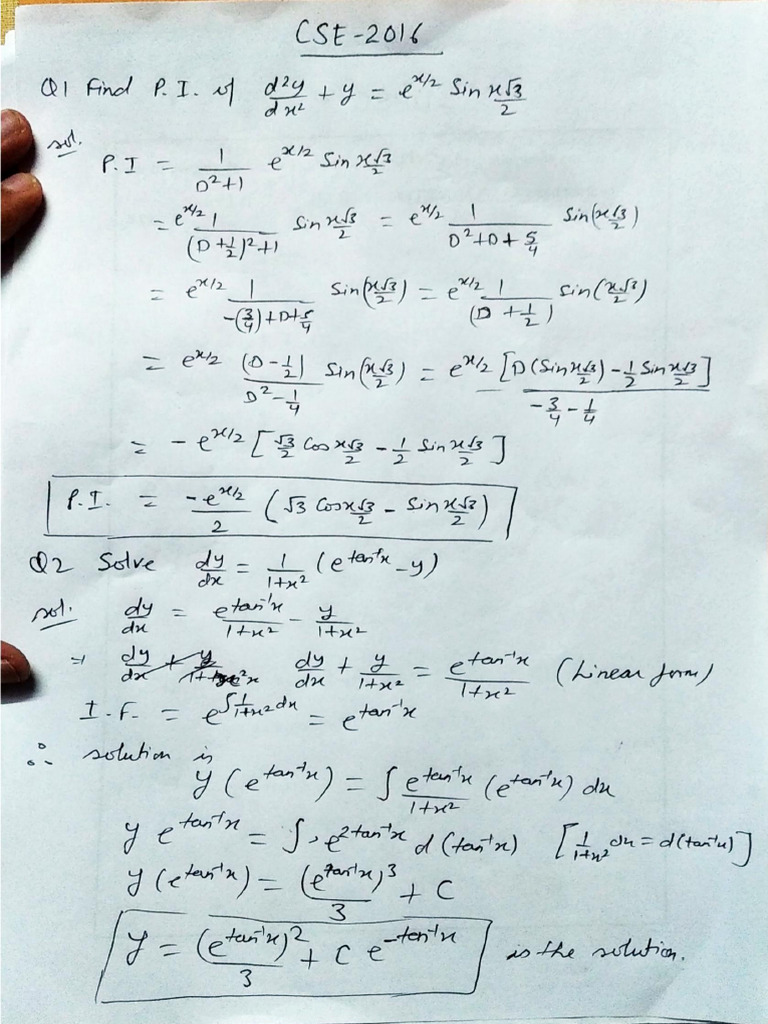 CSE-2016
Q1 Find P.I. of d²y/dx² + y = e^(x/2) Sin x√3/2
sol.
P.I = 1/(D²+1) e^(x/2) Sin x√3/2
= e^(x/2) 1/((D+1/2)²+1) Sin x√3/2 = e^(x/2) 1/(D²+D+5/4) Sin(x√3/2)
= e^(x/2) 1/(-(3/4)+D+5/4) Sin(x√3/2) = e^(x/2) 1/(D+1/2) Sin(x√3/2)
= e^(x/2) (D-1/2)/(D²-1/4) Sin(x√3/2) = e^(x/2) [D(Sin x√3/2) - 1/2 Sin x√3/2]/(-3/4 - 1/4)
= -e^(x/2) [√3/2 Cos x√3/2 - 1/2 Sin x√3/2]
P.I. = -e^(x/2)/2 (√3 Cos x√3/2 - Sin x√3/2)
Q2 Solve dy/dx = 1/(1+x²) (e^(tan⁻¹x) - y)
sol. dy/dx = e^(tan⁻¹x)/(1+x²) - y/(1+x²)
⇒ dy/dx + y/(1+x²) = e^(tan⁻¹x)/(1+x²) (Linear form)
I.F. = e^(∫1/(1+x²) dx) = e^(tan⁻¹x)
∴ solution is
y (e^(tan⁻¹x)) = ∫ e^(tan⁻¹x)/(1+x²) (e^(tan⁻¹x)) dx
y e^(tan⁻¹x) = ∫ e^(2tan⁻¹x) d(tan⁻¹x) [1/(1+x²) dx = d(tan⁻¹x)]
y (e^(tan⁻¹x)) = (e^(tan⁻¹x))³/3 + C
y = (e^(tan⁻¹x))²/3 + C e^(-tan⁻¹x) is the solution.